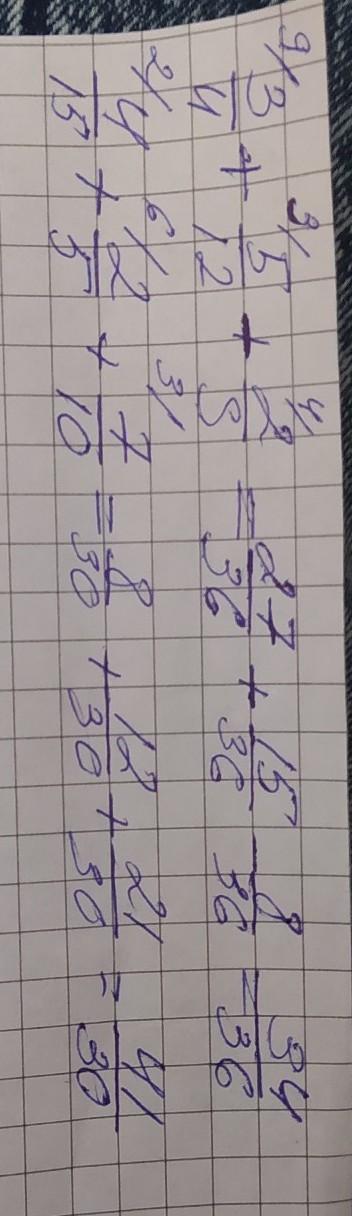 9/ 3/4 + 3/ 5/12 + 4/ 2/9 = 27/36 + 15/36 - 8/36 = 34/36
2/ 4/15 + 6/ 2/5 + 3/ 7/10 = 8/30 + 12/30 + 21/30 = 41/30